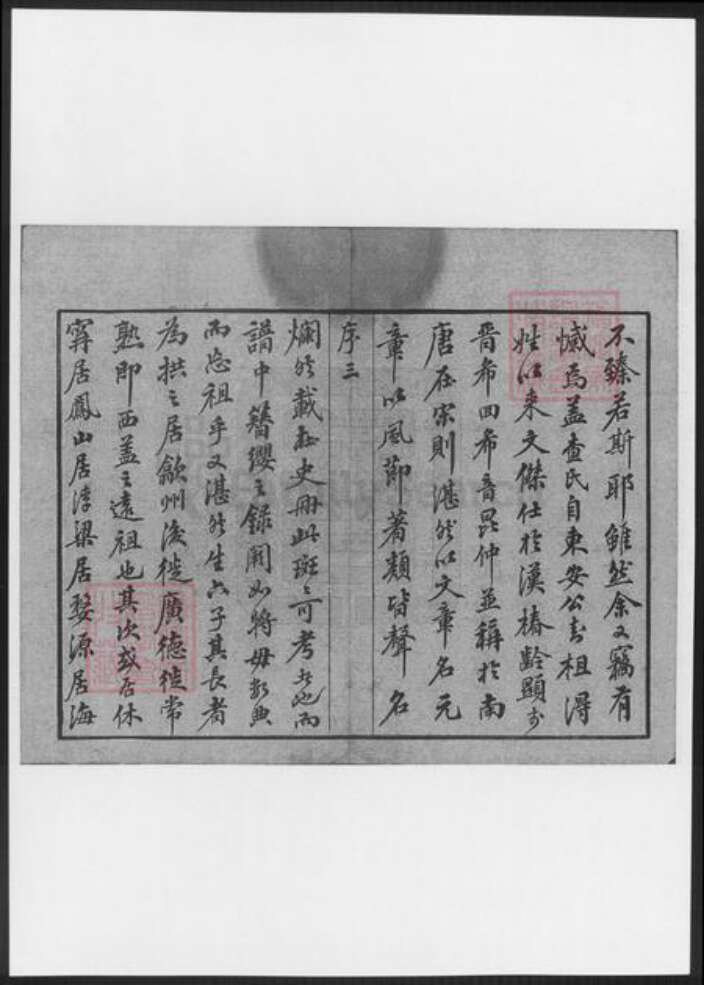 不臻若斯耶雖然余又竊有
憾焉蓋查氏自東安公于祖得
姓以來文傑仕於漢椿齡顯於
晋希回希音昆仲並稱於南
唐在宋則湛然以文章名元
章以風節著類皆聲名
序三
爛然載在史冊此班々可考者也而
譜中簪纓之錄闕如將毋數典
而忘祖乎又湛然生六子其長者
為拱之居歙州後徙廣德徙常
熟即西蓋之遠祖也其次或居休
甯居鳳山居浮梁居婺源居海